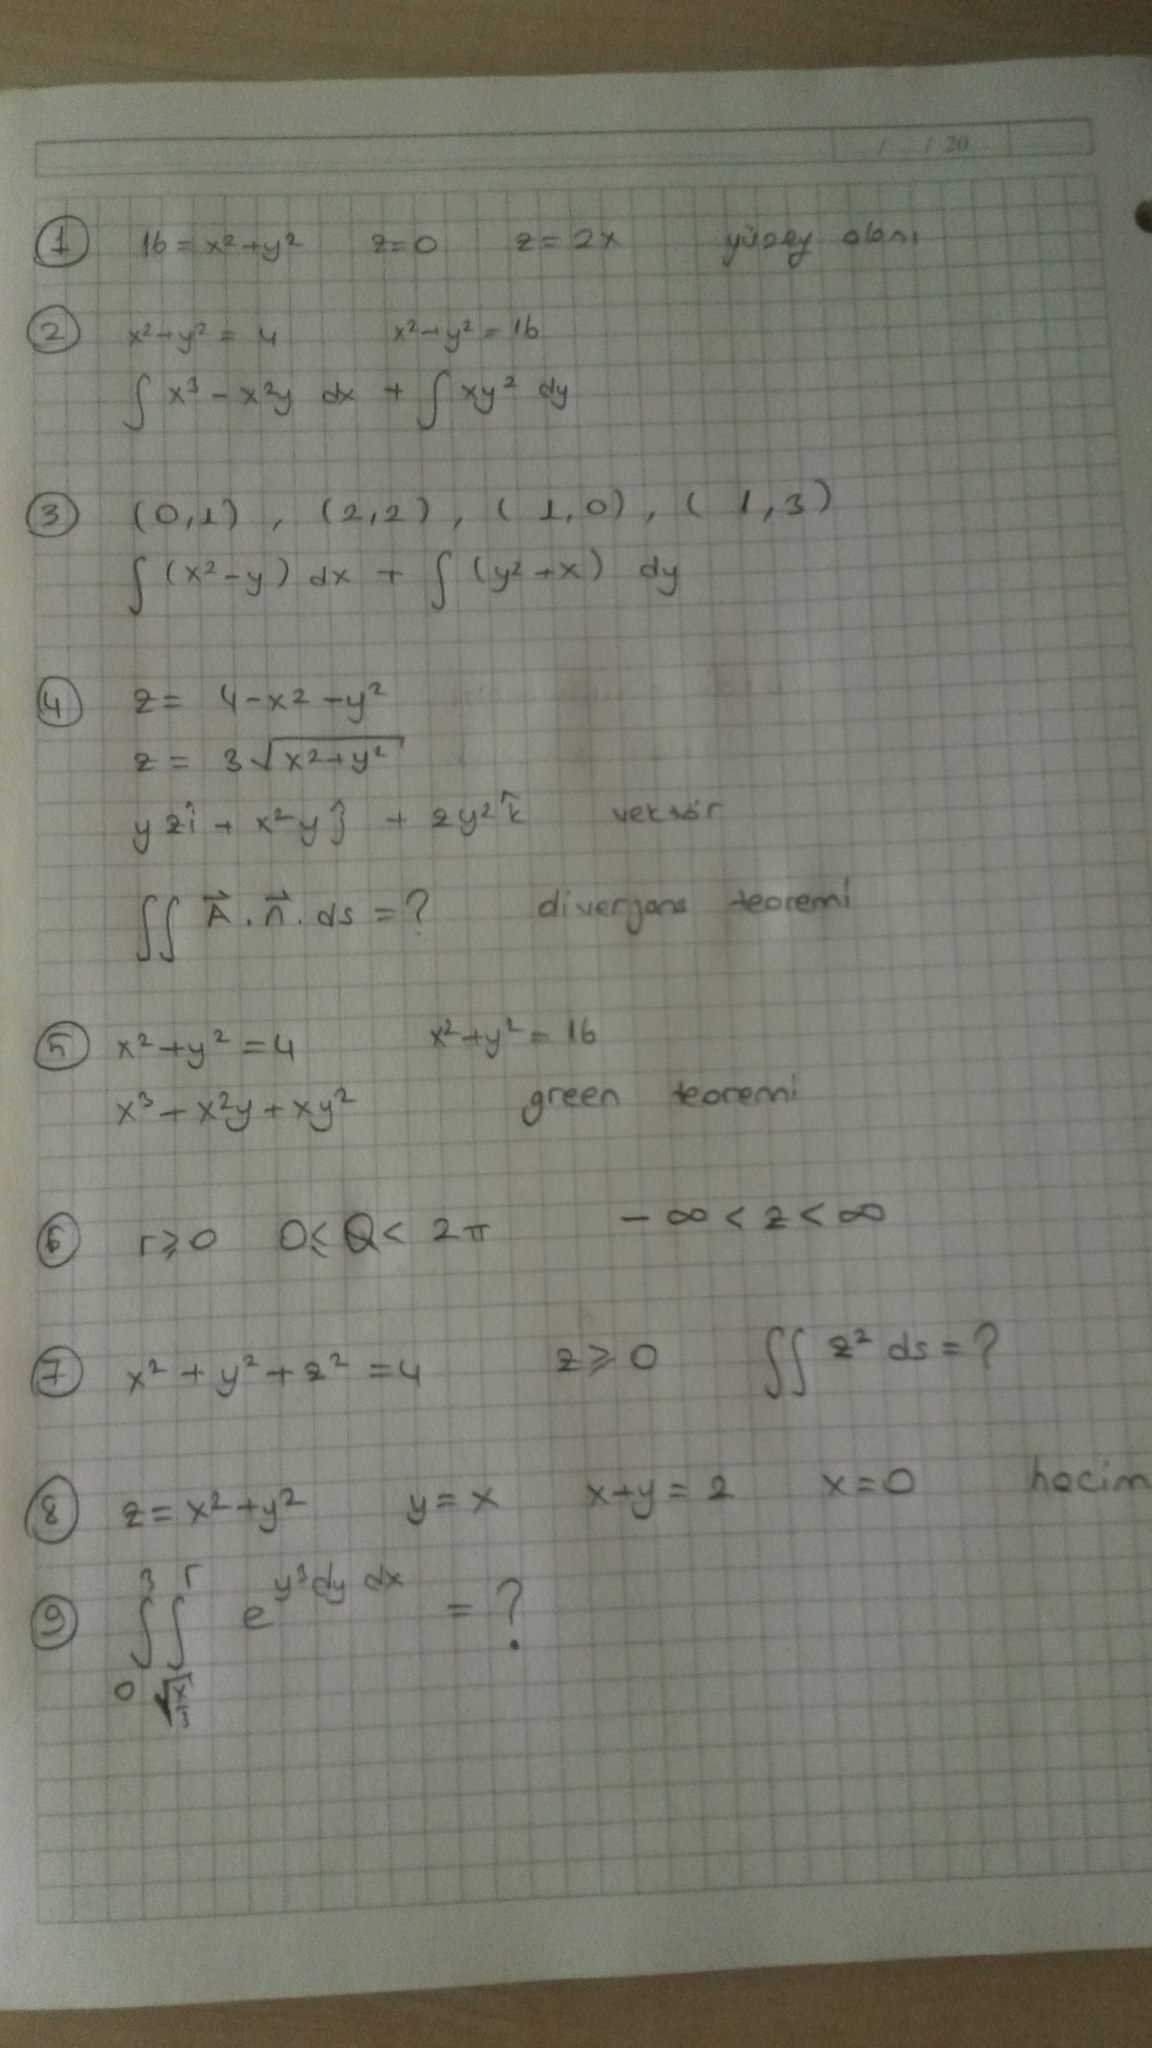 / / 20
1 16 = x² + y² z = 0 z = 2x yüzey alanı
2 x² + y² = 4 x² + y² = 16
∫ x³ - x²y dx + ∫ xy² dy
3 (0,1) , (2,2) , (1,0) , (1,3)
∫ (x² - y) dx + ∫ (y² + x) dy
4 z = 4 - x² - y²
z = 3√(x² + y²)
yzî + x²yĵ + zy²k̂ vektör
∬ A⃗ . n⃗ . ds = ? diverjans teoremi
5 x² + y² = 4 x² + y² = 16
x³ + x²y + xy² green teoremi
6 r ⩾ 0 0 ⩽ Q < 2π - ∞ < z < ∞
7 x² + y² + z² = 4 z ⩾ 0 ∬ z² ds = ?
8 z = x² + y² y = x x + y = 2 x = 0 hacim
9 ∫₀³ ∫ e^(y³ dy dx) = ?